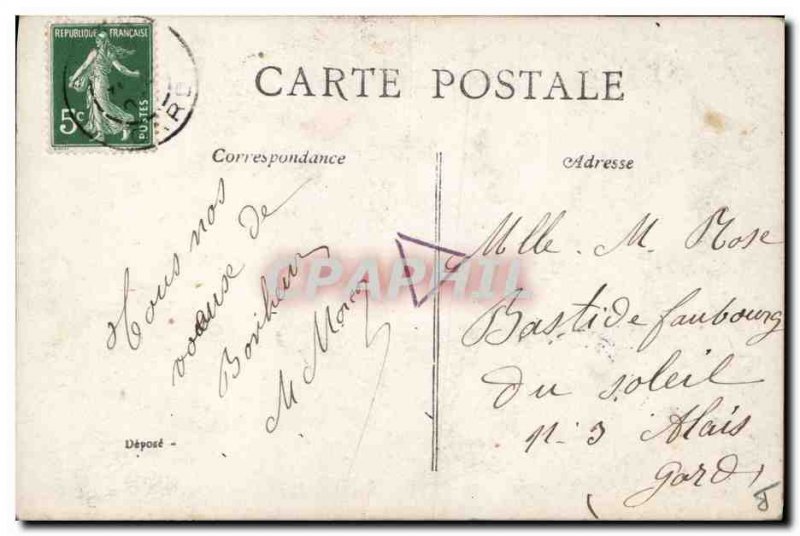 REPUBLIQUE FRANÇAISE
5c
POSTES
CARTE POSTALE
Correspondance
Adresse
Tous nos
voeuse de
Bonheur
M
CPAPHIL
Déposé -
Mlle. M. Rose
Bastide faubourg
du soleil
n. 3 Alais
Gard